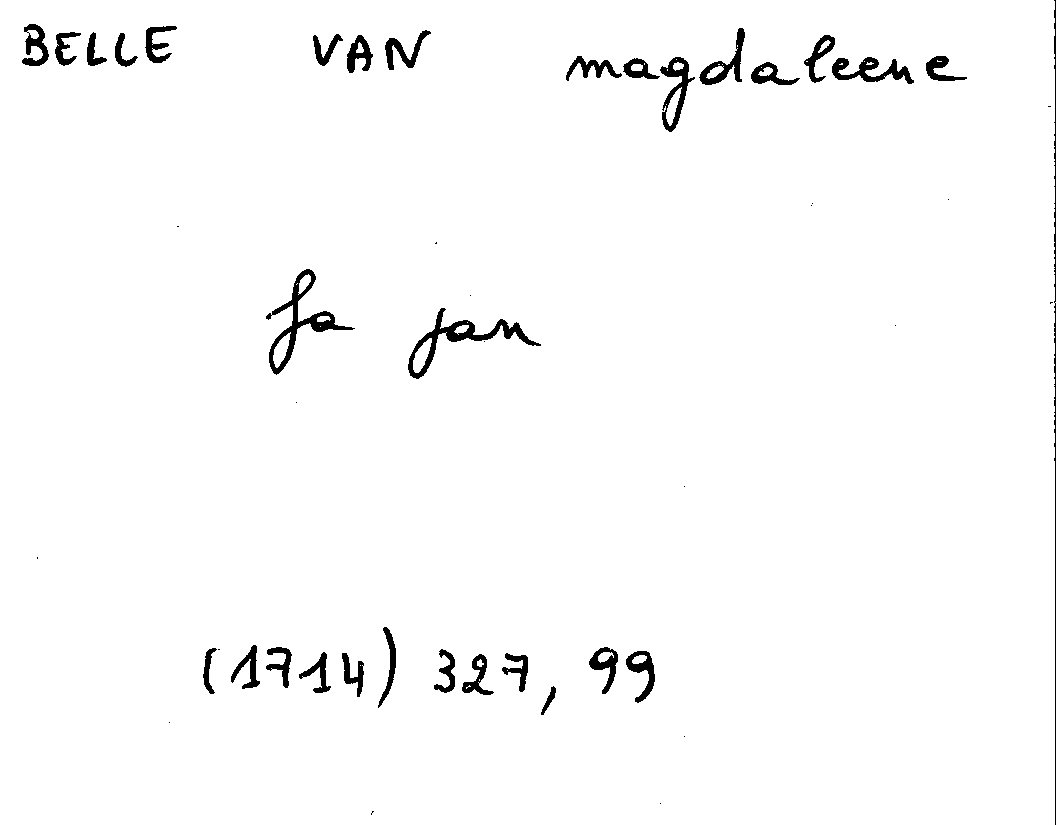 BELLE VAN magdaleene
fa jan
(1714) 327, 99